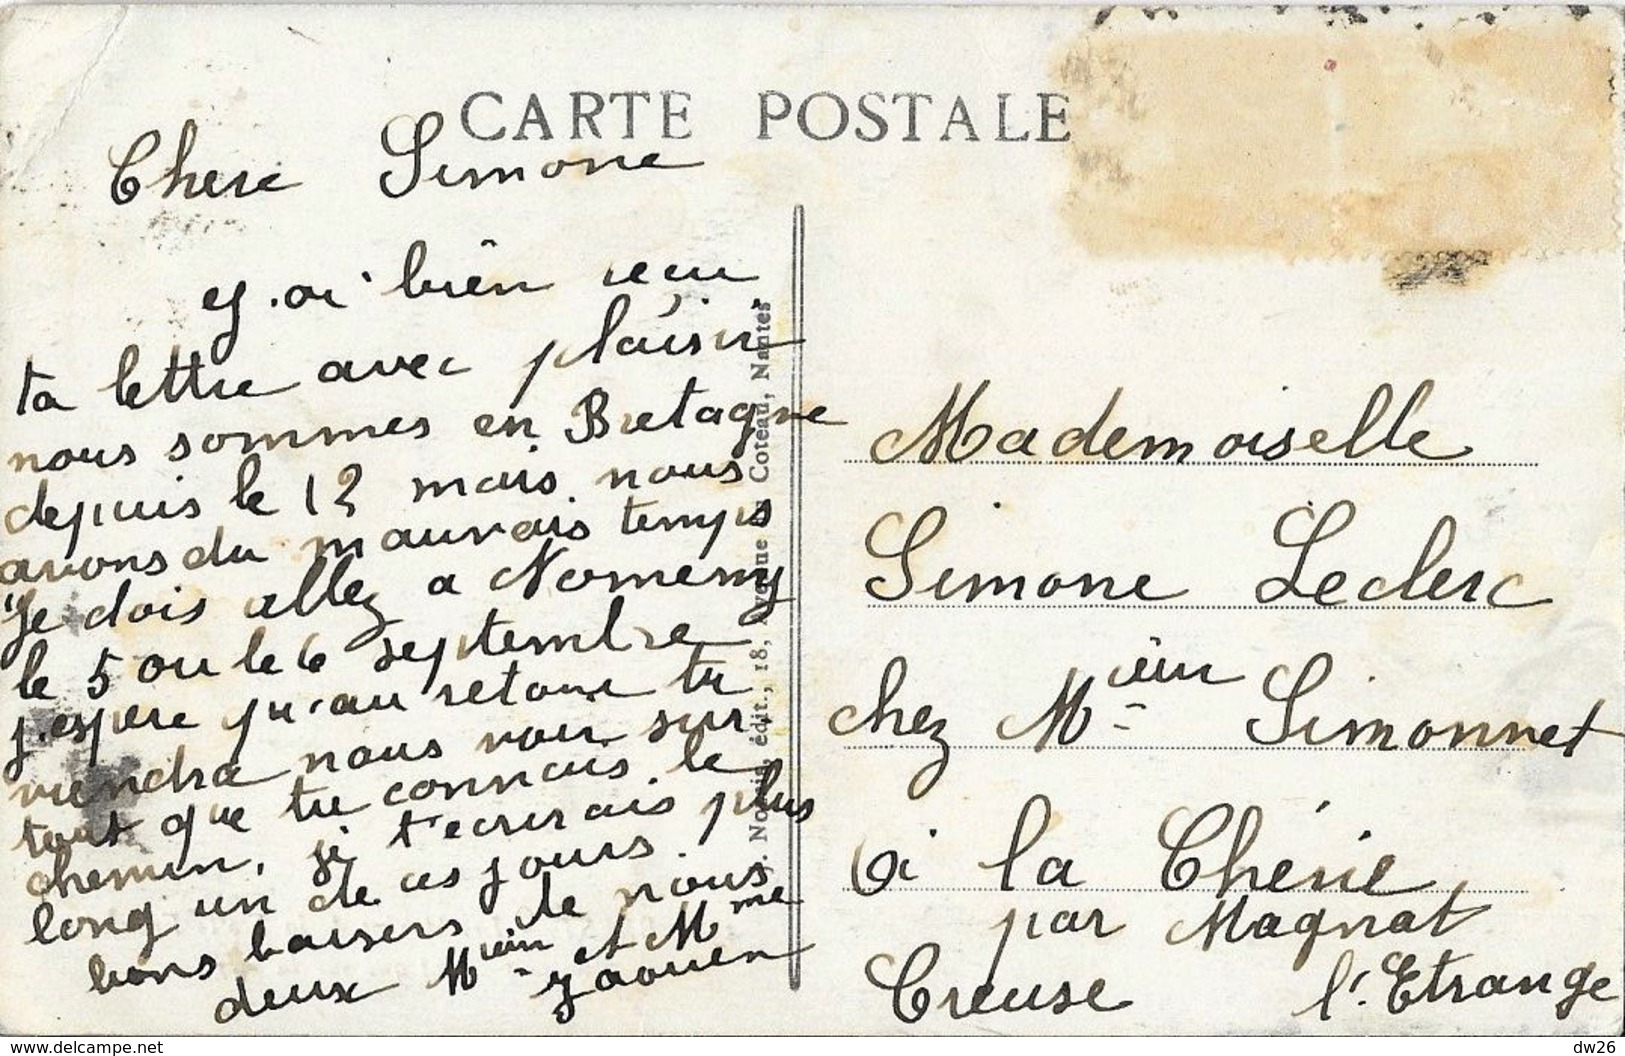 CARTE POSTALE
Chere Simone
J.ai bien recu
ta lettre avec plaisir
nous sommes en Bretagne
depuis le 12 mais nous
avons du mauvais temps
Je dois allez a Nomeny
le 5 ou le 6 septembre
j.espere qu'au retour tu
viendra nous voir sur
tout que tu connais le
chemin, je t'ecrirais plus
long un de ces jours.
bons baisers de nous
deux Mr et Mme
Yaouen
édit., 18, Avenue Coteau, Nantes
Mademoiselle
Simone Leclerc
chez M Simonnet
à la Chérie
par Magnat
Creuse l'Etrange
www.delcampe.net
dw26